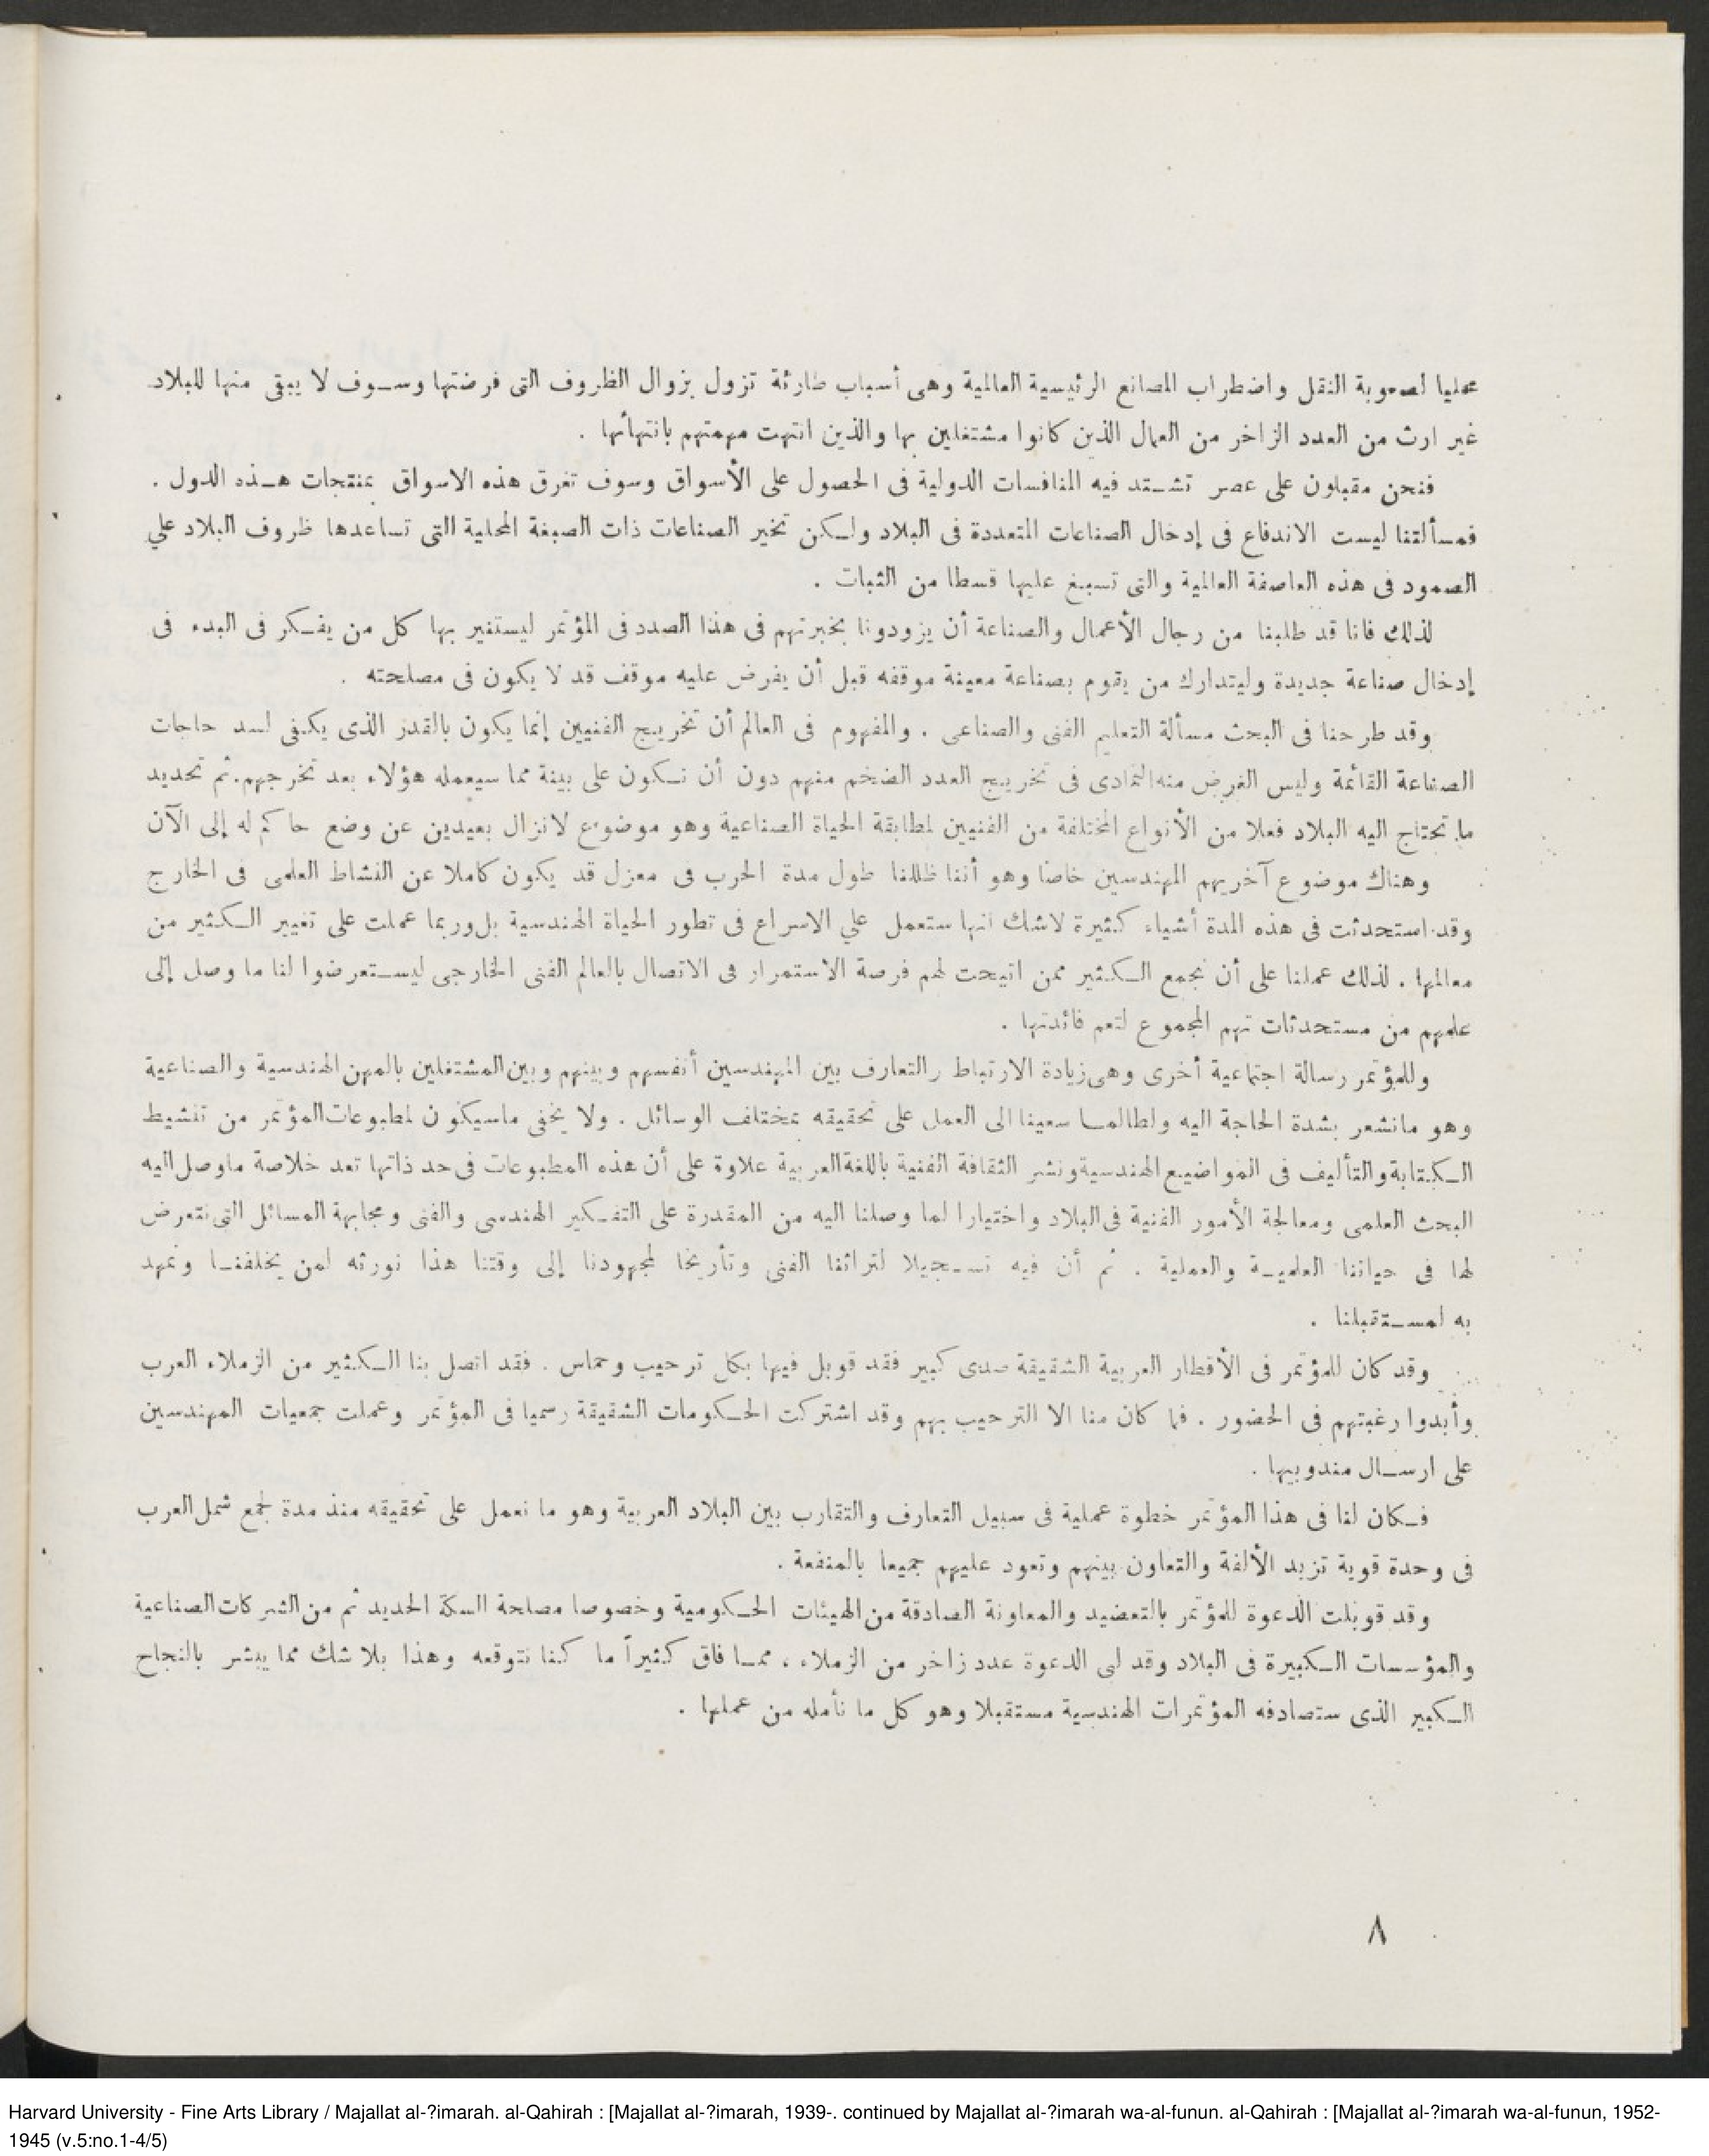 محليا لصعوبة النقل واضطراب المصانع الرئيسية العالمية وهى أسباب طارئة تزول بزوال الظروف التى فرضتها وسوف لا يبقى منها للبلاد
غير ارث من العدد الزاخر من العمال الذين كانوا مشتغلين بها والذين انتهت مهمتهم بانتهائها .
فنحن مقبلون على عصر تشتد فيه المنافسات الدولية فى الحصول على الأسواق وسوف تغرق هذه الاسواق بمنتجات هذه الدول .
فمسألتنا ليست الاندفاع فى إدخال الصناعات المتعددة فى البلاد ولكن تخير الصناعات ذات الصبغة المحلية التى تساعدها ظروف البلاد علي
الصمود فى هذه العاصفة العالمية والتى تسبغ عليها قسطا من الثبات .
لذلك فانا قد طلبنا من رجال الأعمال والصناعة أن يزودونا بخبرتهم فى هذا الصدد فى المؤتمر ليستنير بها كل من يفكر فى البدء فى
إدخال صناعة جديدة وليتدارك من يقوم بصناعة معينة موقفه قبل أن يفرض عليه موقف قد لا يكون فى مصلحته .
وقد طرحنا فى البحث مسألة التعليم الفنى والصناعى . والمفهوم فى العالم أن تخريج الفنيين إنما يكون بالقدر الذى يكفى لسد حاجات
الصناعة القائمة وليس الغرض منه التمادى فى تخريج العدد الضخم منهم دون أن نكون على بينة مما سيعمله هؤلاء بعد تخرجهم. ثم تحديد
ما تحتاج اليه البلاد فعلا من الأنواع المختلفة من الفنيين لمطابقة الحياة الصناعية وهو موضوع لانزال بعيدين عن وضع حاكم له إلى الآن
وهناك موضوع آخريهم المهندسين خاصا وهو أننا ظللنا طول مدة الحرب فى معزل قد يكون كاملا عن النشاط العلمى فى الخارج
وقد استحدثت فى هذه المدة أشياء كثيرة لاشك انها ستعمل علي الاسراع فى تطور الحياة الهندسية بل وربما عملت على تغيير الكثير من
معالمها . لذلك عملنا على أن نجمع الكثير ممن اتيحت لهم فرصة الاستمرار فى الاتصال بالعالم الفنى الخارجى ليستعرضوا لنا ما وصل إلى
علمهم من مستحدثات تهم المجموع لتعم فائدتها .
وللمؤتمر رسالة اجتماعية أخرى وهى زيادة الارتباط والتعارف بين المهندسين أنفسهم وبينهم وبين المشتغلين بالمهن الهندسية والصناعية
وهو مانشعر بشدة الحاجة اليه ولطالما سعينا الى العمل على تحقيقه بمختلف الوسائل . ولا يخفى ماسيكون لمطبوعات المؤتمر من تنشيط
الكتابة والتأليف فى المواضيع الهندسية ونشر الثقافة الفنية باللغة العربية علاوة على أن هذه المطبوعات فى حد ذاتها تعد خلاصة ماوصل اليه
البحث العلمى ومعالجة الأمور الفنية فى البلاد واختيارا لما وصلنا اليه من المقدرة على التفكير الهندسى والفنى ومجابهة المسائل التى نتعرض
لها فى حياتنا العلمية والعملية . ثم أن فيه تسجيلا لتراثنا الفنى وتأريخا لمجهودنا إلى وقتنا هذا نورثه لمن يخلفنا ونمهد
به لمستقبلنا .
وقد كان للمؤتمر فى الأقطار العربية الشقيقة صدى كبير فقد قوبل فيها بكل ترحيب وحماس . فقد اتصل بنا الكثير من الزملاء العرب
وأبدوا رغبتهم فى الحضور . فما كان منا الا الترحيب بهم وقد اشتركت الحكومات الشقيقة رسميا فى المؤتمر وعملت جمعيات المهندسين
على ارسال مندوبيها .
فكان لنا فى هذا المؤتمر خطوة عملية فى سبيل التعارف والتقارب بين البلاد العربية وهو ما نعمل على تحقيقه منذ مدة لجمع شمل العرب
فى وحدة قوية تزيد الألفة والتعاون بينهم وتعود عليهم جميعا بالمنفعة .
وقد قوبلت الدعوة للمؤتمر بالتعضيد والمعاونة الصادقة من الهيئات الحكومية وخصوصا مصلحة السكة الحديد ثم من الشركات الصناعية
والمؤسسات الكبيرة فى البلاد وقد لبى الدعوة عدد زاخر من الزملاء ، مما فاق كثيراً ما كنا نتوقعه وهذا بلا شك مما يبشر بالنجاح
الكبير الذى ستصادفه المؤتمرات الهندسية مستقبلا وهو كل ما نأمله من عملها .
٨
Harvard University - Fine Arts Library / Majallat al-?imarah. al-Qahirah : [Majallat al-?imarah, 1939-. continued by Majallat al-?imarah wa-al-funun. al-Qahirah : [Majallat al-?imarah wa-al-funun, 1952-
1945 (v.5:no.1-4/5)